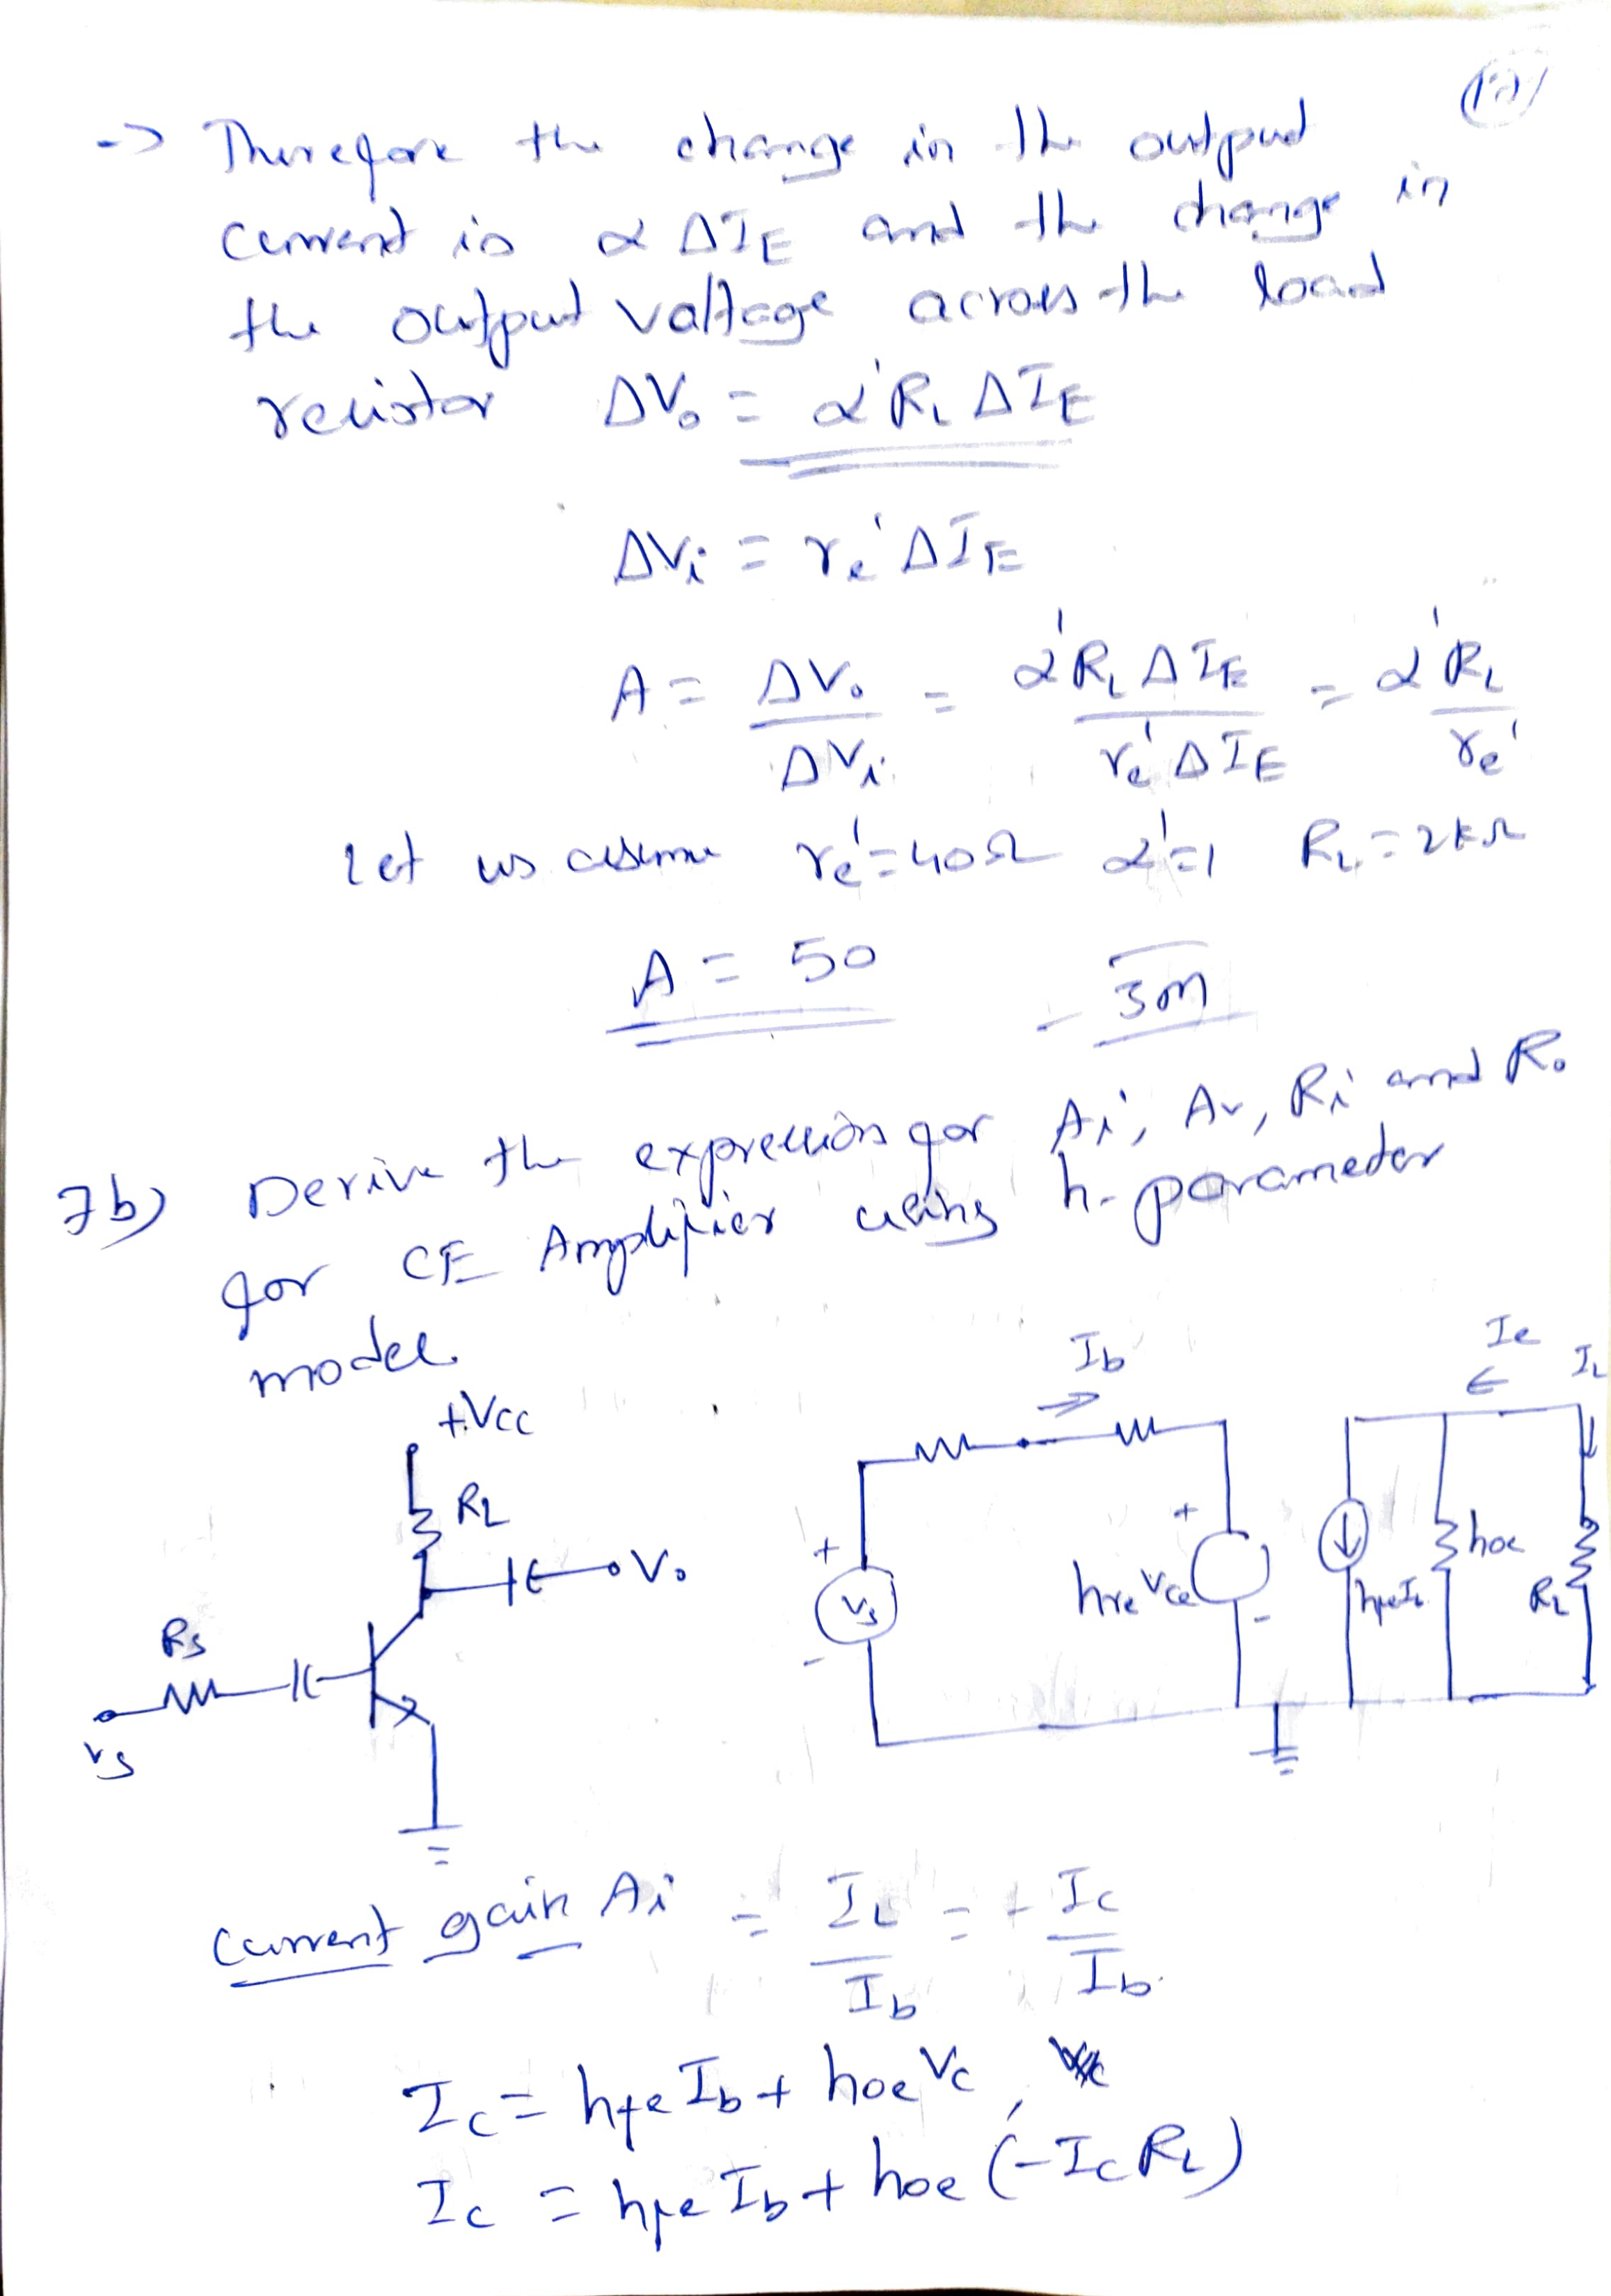 (12)
-> Therefore the change in the output
current is α ΔIE and the change in
the output voltage across the load
resistor ΔVo = α'RL ΔIE
ΔVi = re' ΔIE
A = ΔVo / ΔVi = α'RL ΔIE / re' ΔIE = α'RL / re'
Let us assume re' = 40Ω α' = 1 RL = 2kΩ
A = 50
- 3M
7b) Derive the expression for Ai, Av, Ri and Ro
for CE Amplifier using h-parameter
model.
Ib
Ic
IL
+Vcc
RL
Vo
Rs
Vs
+
Vs
-
+
hre Vce
-
hfe Ib
hoe
RL
Current gain Ai = IL / Ib = - Ic / Ib
Ic = hfe Ib + hoe Vc,
Ic = hfe Ib + hoe (-Ic RL)